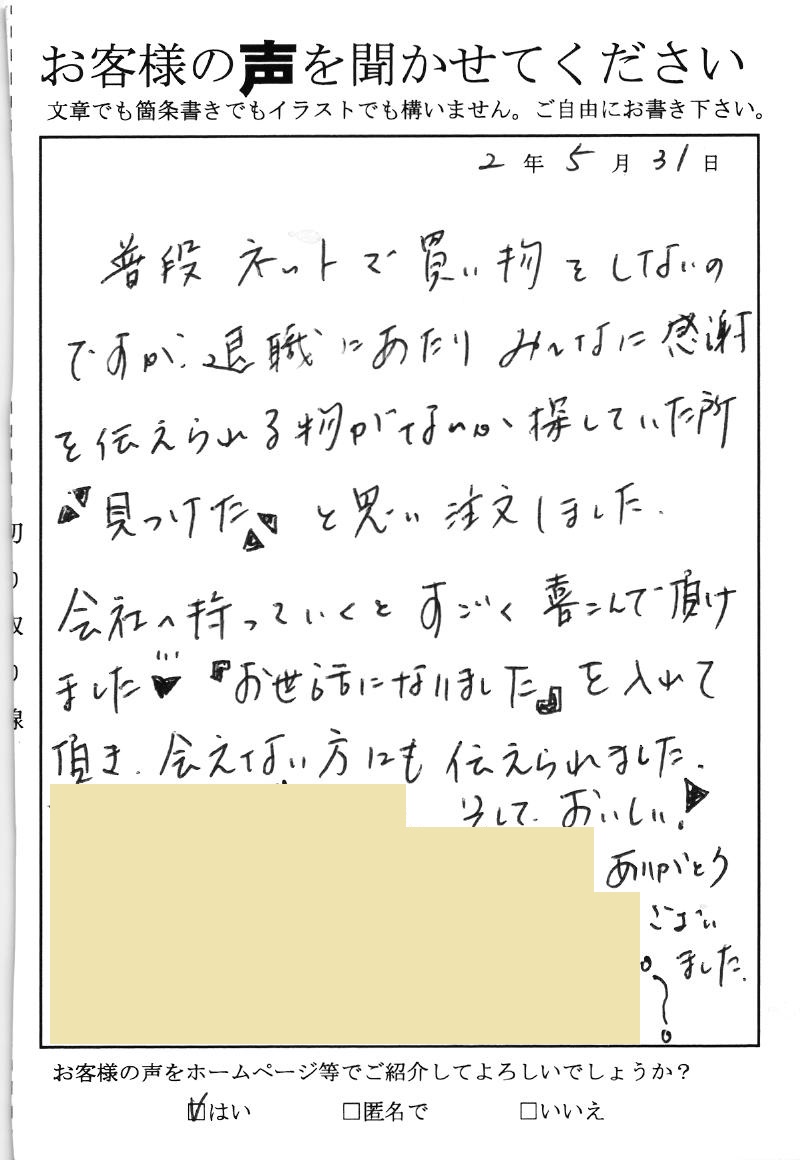 お客様の声を聞かせてください
文章でも箇条書きでもイラストでも構いません。ご自由にお書き下さい。
2年5月31日
普段ネットで買い物をしないの
ですが、退職にあたりみんなに感謝
を伝えられる物がないか、探していた所
"見つけた"と思い注文しました.
会社へ持っていくとすごく喜こんで頂け
ました♥『お世話になりました』を入れて
頂き、会えない方にも伝えられました.
そして、おいしい!
ありがとう
ござい
ました.
切り取り線
お客様の声をホームページ等でご紹介してよろしいでしょうか？
☑はい □匿名で □いいえ